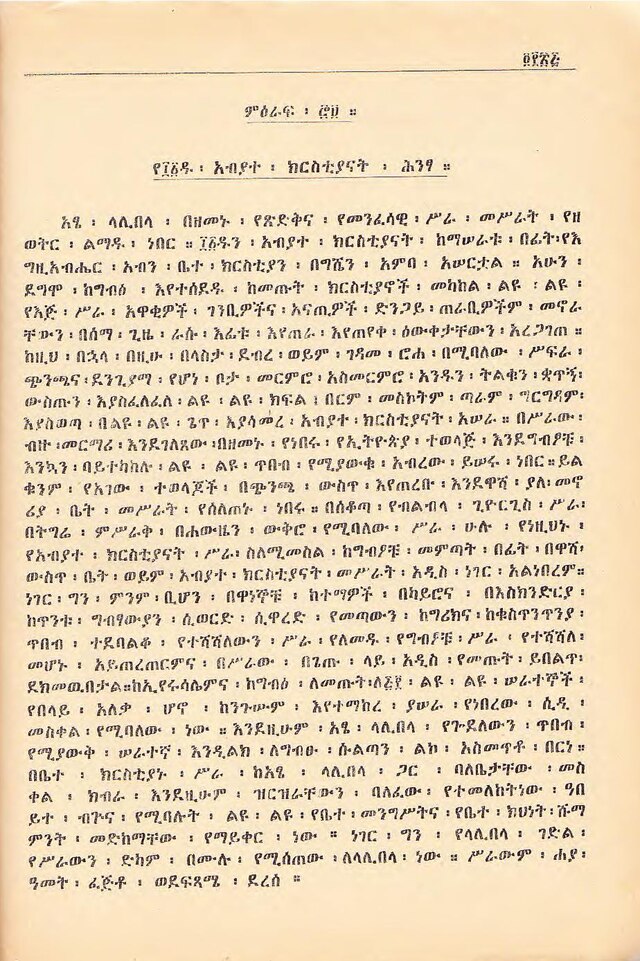 ምዕራፍ ፡ ፸፱ ።
የ፲፩ዱ ፡ አብያተ ፡ ክርስቲያናት ፡ ሕንፃ ።
አፄ ፡ ላሊበላ ፡ በዘመኑ ፡ የጽድቅና ፡ የመንፈሳዊ ፡ ሥራ ፡ መሥራት ፡ የዘ
ወትር ፡ ልማዱ ፡ ነበር ። ፲፩ዱን ፡ አብያተ ፡ ክርስቲያናት ፡ ከማሠራቱ ፡ በፊት፡የእ
ግዚአብሔር ፡ አብን ፡ ቤተ ፡ ክርስቲያን ፡ በግሼን ፡ አምባ ፡ አሠርቷል ። አሁን ፡
ደግሞ ፡ ከግብፅ ፡ እየተሰደዱ ፡ ከመጡት ፡ ክርስቲያኖች ፡ መካከል ፡ ልዩ ፡ ልዩ ፡
የእጅ ፡ ሥራ ፡ አዋቂዎች ፡ ገንቢዎችና ፡ አናጢዎች ፡ ድንጋይ ፡ ጠራቢዎችም ፡ መኖራ
ቸውን ፡ በሰማ ፡ ጊዜ ፡ ራሱ ፡ እፊቱ ፡ እየጠራ ፡ እየጠየቀ ፡ ዕውቀታቸውን ፡ አረጋገጠ ።
ከዚህ ፡ በኋላ ፡ በዚሁ ፡ በላስታ ፡ ደብረ ፡ ወይም ፡ ገዳመ ፡ ሮሐ ፡ በሚባለው ፡ ሥፍራ ፡
ጭንጫና ፡ ደንጊያማ ፡ የሆነ ፡ ቦታ ፡ መርምሮ ፡ አስመርምሮ ፡ አንዱን ፡ ትልቁን ፡ ቋጥኝ፡
ውስጡን ፡ እያስፈለፈለ ፡ ልዩ ፡ ልዩ ፡ ክፍል ፡ በርም ፡ መስኮትም ፡ ጣራም ፡ ግርግዳም፡
እያስወጣ ፡ በልዩ ፡ ልዩ ፡ ጌጥ ፡ እያሳመረ ፡ አብያተ ፡ ክርስቲያናት ፡ አሠራ ። በሥራው ፡
ብዙ ፡ መርማሪ ፡ እንደገለጸው ፡ በዘመኑ ፡ የነበሩ ፡ የኢትዮጵያ ፡ ተወላጅ ፡ እንደግብፆቹ ፡
እንኳን ፡ ባይተካከሉ ፡ ልዩ ፡ ልዩ ፡ ጥበብ ፡ የሚያውቁ ፡ አብረው ፡ ይሠሩ ፡ ነበር ። ይል
ቁንም ፡ የአገው ፡ ተወላጆች ፡ በጭንጫ ፡ ውስጥ ፡ እየጠረቡ ፡ እንደዋሻ ፡ ያለ፡ መኖ
ሪያ ፡ ቤት ፡ መሥራት ፡ የሰለጠኑ ፡ ነበሩ ። በሰቆጣ ፡ የብልብላ ፡ ጊዮርጊስ ፡ ሥራ፡
በትግሬ ፡ ምሥራቅ ፡ በሐውዜን ፡ ውቅሮ ፡ የሚባለው ፡ ሥራ ፡ ሁሉ ፡ የነዚህኑ ፡
የአብያተ ፡ ክርስቲያናት ፡ ሥራ፡ ስለሚመስል ፡ ከግብፆቹ ፡ መምጣት ፡ በፊት ፡ በዋሻ፡
ውስጥ ፡ ቤት፡ ወይም ፡ አብያተ ፡ ክርስቲያናት ፡ መሥራት ፡ አዲስ ፡ ነገር ፡ አልነበረም።
ነገር ፡ ግን ፡ ምንም ፡ ቢሆን ፡ በዋነኞቹ ፡ ከተማዎች ፡ በካይሮና ፡ በእስክንድርያ ፡
ከጥንቱ ፡ ግብፃውያን ፡ ሲወርድ ፡ ሲዋረድ ፡ የመጣውን ፡ ከግሪክና ፡ ከቁስጥንጥንያ ፡
ጥበብ ፡ ተደባልቆ ፡ የተሻሻለውን ፡ ሥራ ፡ የለመዱ ፡ የግብፆቹ ፡ ሥራ ፡ የተሻሻለ፡
መሆኑ ፡ አይጠረጠርምና ፡ በሥራው ፡ በጌጡ ፡ ላይ ፡ አዲስ ፡ የመጡት ፡ ይበልጥ፡
ከኢየሩሳሌምና ፡ ከግብፅ ፡ ለመጡት፡ ልዩ ፡ ልዩ ፡ ሠራተኞች ፡
የበላይ ፡ አለቃ ፡ ሆኖ ፡ ከንጉሡም ፡ እየተማከረ ፡ ያሠራ ፡ የነበረው ፡ ሲዲ ፡
መስቀል ፡ የሚባለው ፡ ነው ። እንደዚሁም ፡ አፄ ፡ ላሊበላ ፡ የጐደለውን ፡ ጥበብ ፡
የሚያውቅ ፡ ሠራተኛ ፡ እንዲልክ ፡ ለግብፁ ፡ ሱልጣን ፡ ልኮ ፡ አስመጥቶ ፡ በርነ ።
በቤተ ፡ ክርስቲያኑ ፡ ሥራ ፡ ከአፄ ፡ ላሊበላ ፡ ጋር ፡ ባለቤታቸው ፡ መስ
ቀል ፡ ክብራ ፡ እንደዚሁም ፡ ዝርዝራቸውን ፡ ባለፈው ፡ የተመለከትነው ፡ ዓበ
ይተ ፡ ብጕና ፡ የሚባሉት ፡ ልዩ ፡ ልዩ ፡ የቤተ ፡ መንግሥትና ፡ የቤተ ፡ ክህነት ፡ ሹማ
ምንት ፡ መድከማቸው ፡ የማይቀር ፡ ነው ። ነገር ፡ ግን ፡ የላሊበላ ፡ ገድል ፡
የሥራውን ፡ ድካም ፡ በሙሉ ፡ የሚሰጠው ፡ ለላሊበላ ፡ ነው ። ሥራውም ፡ ሐያ፡
ዓመት ፡ ፈጅቶ ፡ ወደፍጻሜ ፡ ደረሰ ።